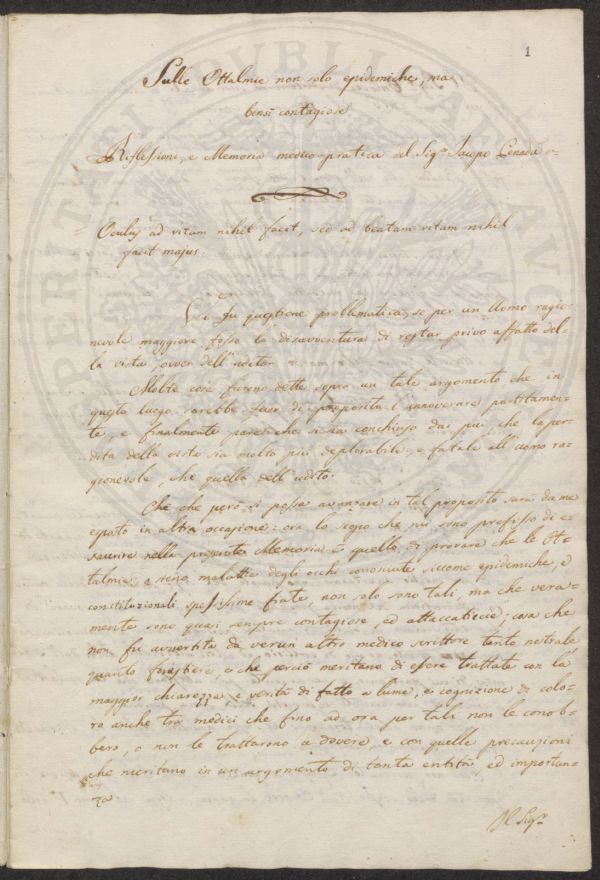 1
Sulle Ottalmie non solo epidemiche, ma
bensì contagiose
Riflessioni, e Memoria medico-pratica del Sigr Jacopo Penada
Oculus ad vitam nihil facit, sed ad beatam vitam nihil
facit majus.
Vi fu questione problematica, se per un Uomo ragio-
nevole maggiore fosse la disavventura di restar privo affatto del-
la vista, ovver dell'udito
Molte cose furono dette sopra un tale argomento che in
questo luogo sarebbe fuor di proposito l'innoverare partitamen-
te, e finalmente pare che si sia conchiuso dai più, che la per-
dita della vista sia molto più deplorabile, e fatale all'uomo ra-
gionevole, che quella dell'udito.
Che che però si possa avanzare in tal proposito sarà da me
esposto in altra occasione: ora lo scopo che mi sono prefisso di e-
saurire nella presente Memoria è quello di provare che le Ot-
talmie, o sieno malattie degli occhi conosciute siccome epidemiche, e
constituzionali spessissime fiate, non solo sono tali, ma che vera-
mente sono quasi sempre contagiose, ed attaccaticcie; cosa che
non fu avvertita da verun altro medico scrittore tanto nostrale
quanto forestiere, e che perciò meritano di essere trattate con la
maggior chiarezza, e verità di fatto a lume, e cognizione di colo-
ro anche tra medici che fino ad ora per tali non le conob-
bero, o non le trattarono a dovere, e con quelle precauzioni
che meritano in un argomento di tanta entità, ed importan-
za
Il Sigr